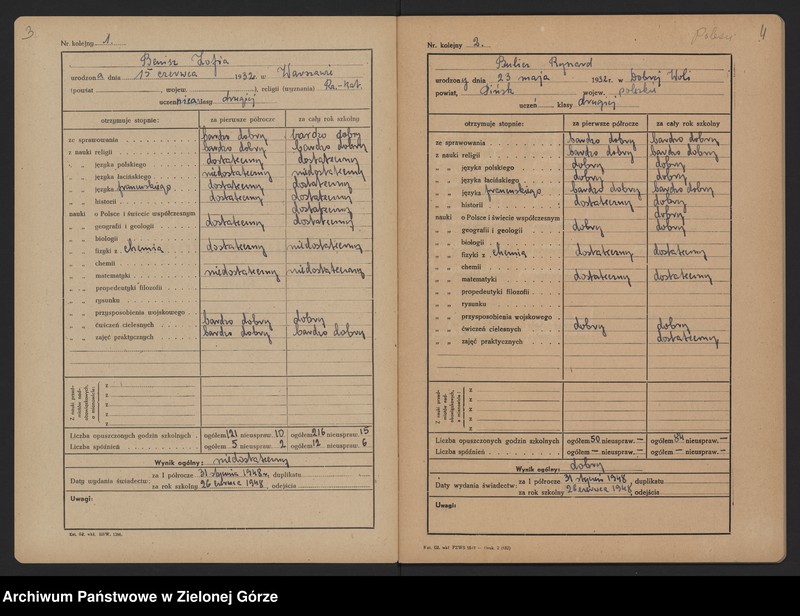 3
Nr. kolejny 1.
Benisz Zofia
urodzona dnia 15 czerwca 1932 r. w Warszawie
(powiat wojew. ), religii (wyznania) Rz-kat.
uczennica klasy drugiej
otrzymuje stopnie: za pierwsze półrocze za cały rok szkolny
ze sprawowania bardzo dobry bardzo dobry
z nauki religii bardzo dobry bardzo dobry
„ „ języka polskiego dostateczny dostateczny
„ „ języka łacińskiego niedostateczny niedostateczny
„ „ języka francuskiego dostateczny dostateczny
„ „ historii dostateczny dostateczny
nauki o Polsce i świecie współczesnym dostateczny
„ „ geografii i geologii dostateczny dostateczny
„ „ biologii
„ „ fizyki z chemią dostateczny niedostateczny
„ „ chemii
„ „ matematyki niedostateczny niedostateczny
„ „ propedeutyki filozofii
„ „ rysunku
„ „ przysposobienia wojskowego
„ „ ćwiczeń cielesnych bardzo dobry dobry
„ „ zajęć praktycznych bardzo dobry bardzo dobry
Liczba opuszczonych godzin szkolnych ogółem 121 nieuspraw. 10 ogółem 216 nieuspraw. 15
Liczba spóźnień ogółem 5 nieuspraw. 2 ogółem 12 nieuspraw. 6
Wynik ogólny: niedostateczny
Daty wydania świadectw: za I półrocze 31 stycznia 1948 r., duplikatu
za rok szkolny 26 czerwca 1948, odejścia
Uwagi:
4
Nr. kolejny 2.
Ryszard
urodzony dnia 23 maja 1932 r. w Dobrej Woli
powiat, Pińsk wojew. poleskie
uczeń klasy drugiej
otrzymuje stopnie: za pierwsze półrocze za cały rok szkolny
ze sprawowania bardzo dobry bardzo dobry
z nauki religii bardzo dobry bardzo dobry
„ „ języka polskiego dobry dobry
„ „ języka łacińskiego dobry dobry
„ „ języka francuskiego bardzo dobry bardzo dobry
„ „ historii dostateczny dobry
nauki o Polsce i świecie współczesnym dobry
„ „ geografii i geologii dobry dobry
„ „ biologii
„ „ fizyki z chemią dostateczny dostateczny
„ „ chemii
„ „ matematyki dostateczny dostateczny
„ „ propedeutyki filozofii
„ „ rysunku
„ „ przysposobienia wojskowego
„ „ ćwiczeń cielesnych dobry dobry
„ „ zajęć praktycznych dostateczny
Liczba opuszczonych godzin szkolnych ogółem 50 nieuspraw. — ogółem 84 nieuspraw. —
Liczba spóźnień ogółem — nieuspraw. — ogółem — nieuspraw. —
Wynik ogólny: dobry
Daty wydania świadectw: za I półrocze 31 styczeń 1948, duplikatu
za rok szkolny 26 czerwca 1948, odejścia
Uwagi:
Archiwum Państwowe w Zielonej Górze